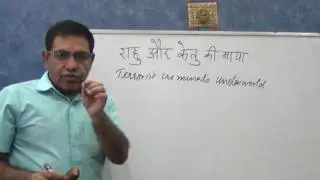 राहु और केतु की माया
Terrorist criminals underworld